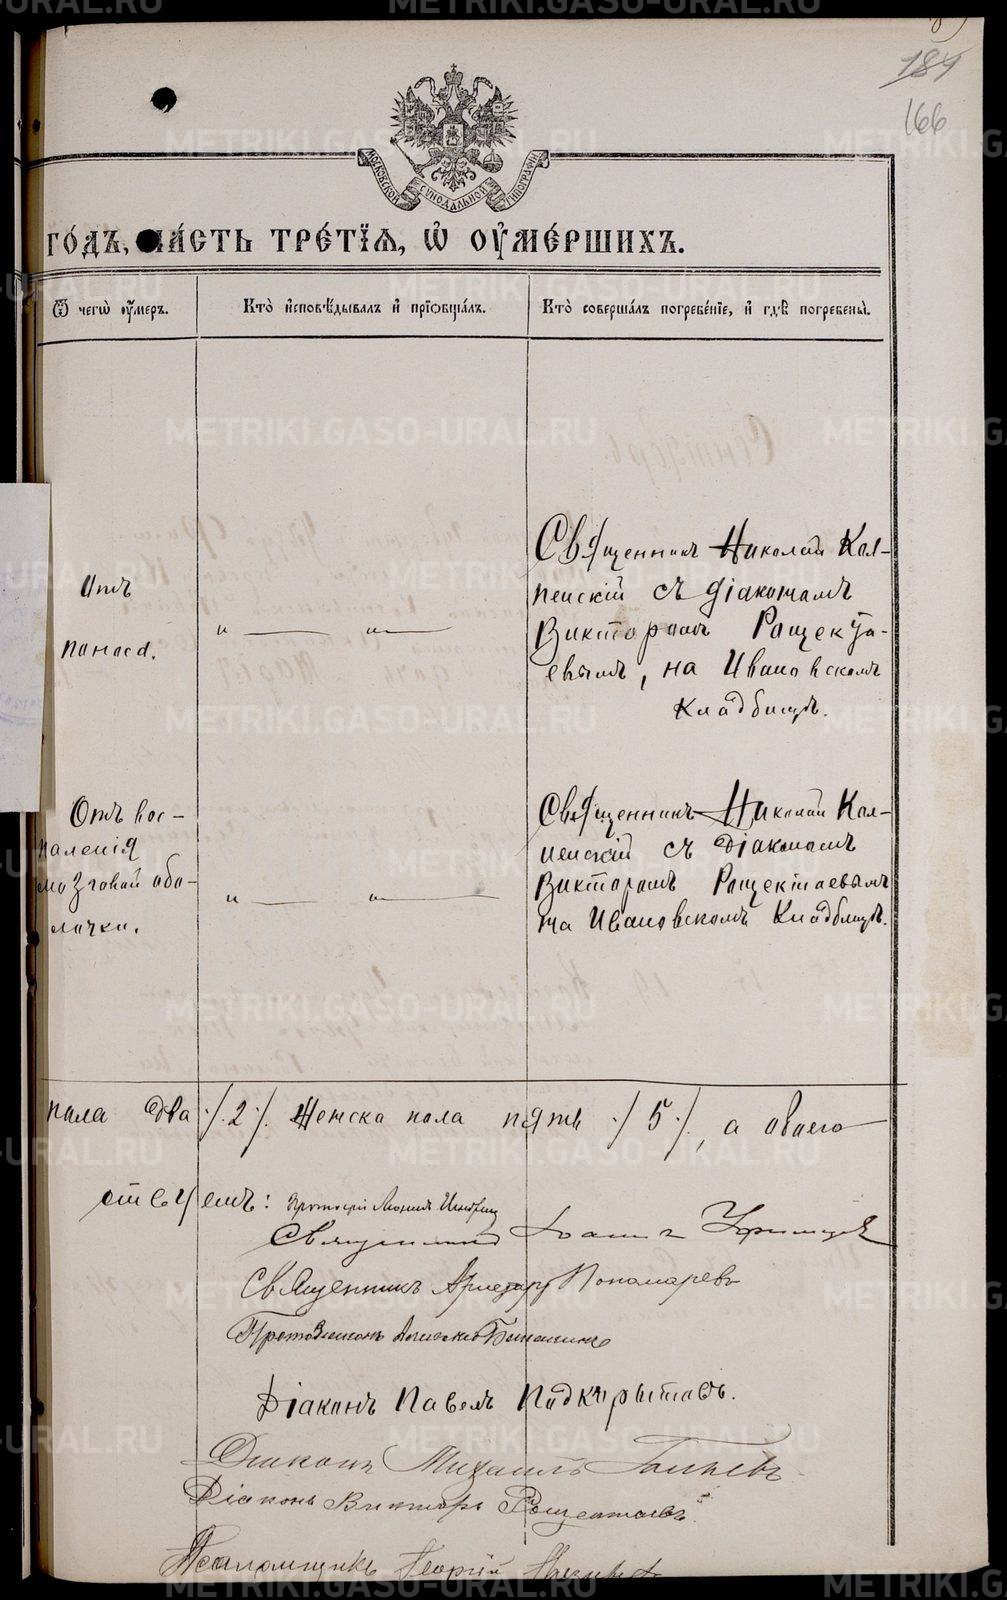 184
166
МОСКОВСКОЙ СѴНОДАЛЬНОЙ ТИПОГРАФІИ
го́дъ, ча́сть тре́тїѧ, ѡ҆ ᲂу҆ме́ршихъ.
Ѿ чегѡ̀ ᲂу҆́меръ.
Кто̀ и҆сповѣ́дывалъ и҆ прїѡбща́лъ.
Кто̀ соверша́лъ погребе́нїе, и҆ гдѣ̀ погребены̀.
Отъ
поноса.
" — " —
Священникъ Николай
съ діакономъ
Викторомъ Рощекта-
евымъ, на Ивановскомъ
кладбищѣ.
Отъ вос-
паленія
мозговой обо-
лочки.
" — " —
Священникъ Николай
съ діакономъ
Викторомъ Рощектаевымъ
на Ивановскомъ кладбищѣ.
пола два ·/.2·/. Женска пола пять ·/5·/., а обоего
Протоіерей
Священникъ Іоаннъ
Священникъ Пономаревъ
Протодіаконъ
Діаконъ Павелъ Подкорытовъ.
Діаконъ Михаилъ
Діаконъ Викторъ Рощектаевъ.
Псаломщикъ Георгій
METRIKI.GASO-URAL.RU